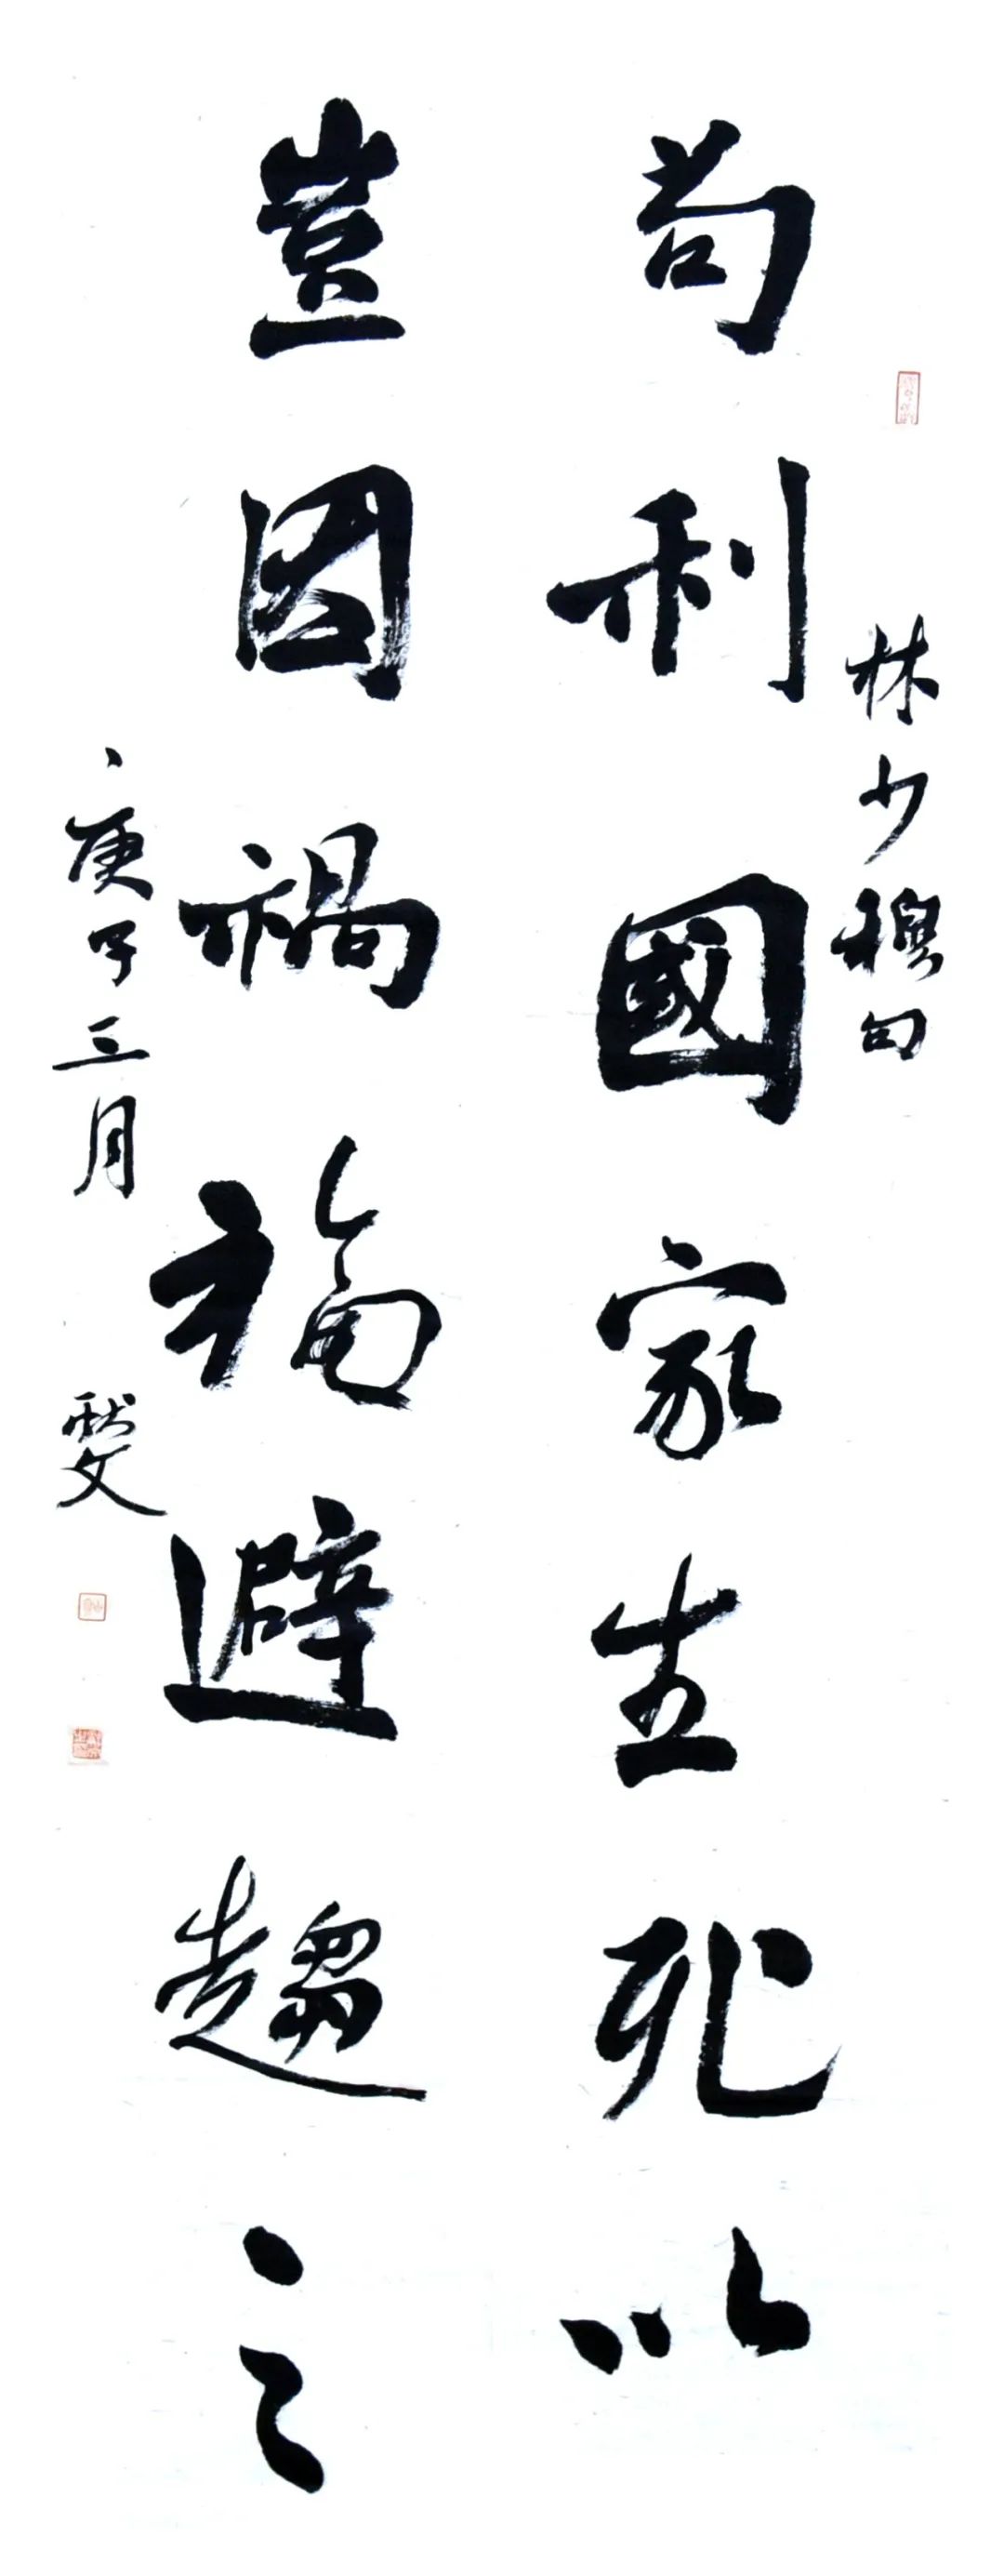 林少穆句
苟利國家生死以
豈因禍福避趨之
庚子三月